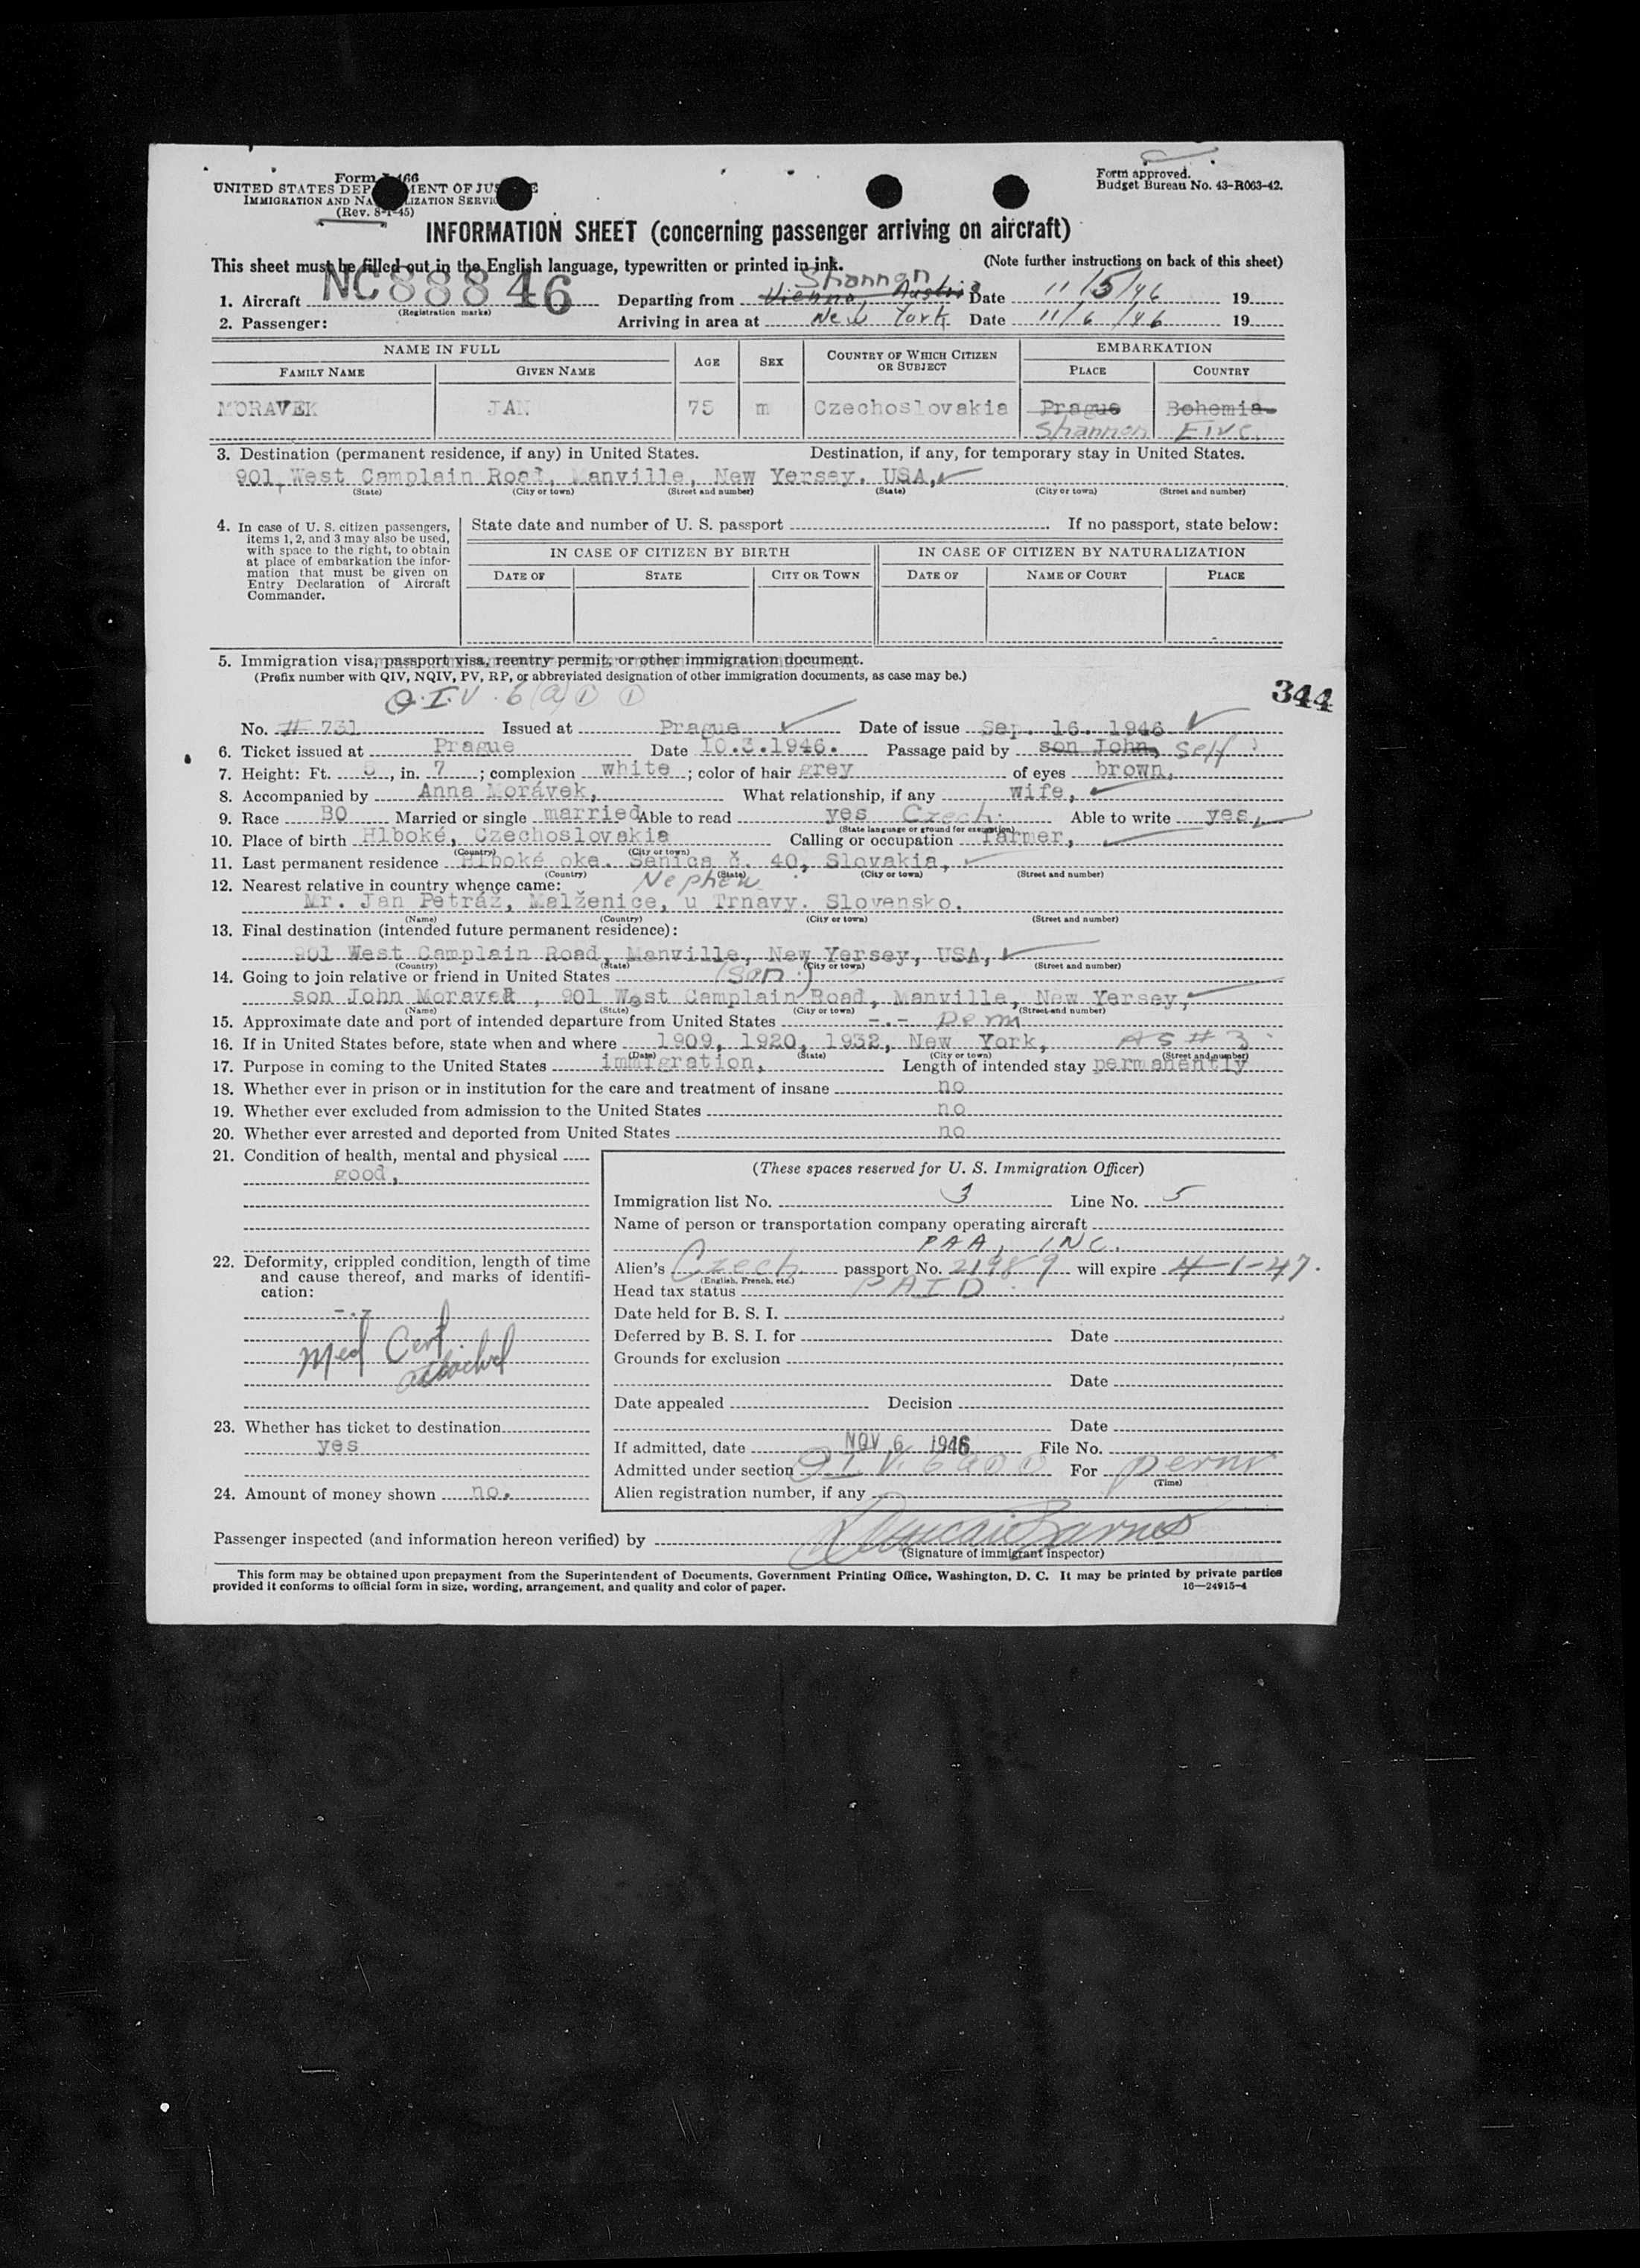 Form 466
UNITED STATES DEP MENT OF JUS E
IMMIGRATION AND NA LIZATION SERVIC
(Rev. 8-1-45)
Form approved.
Budget Bureau No. 43-R063-42.
INFORMATION SHEET (concerning passenger arriving on aircraft)
This sheet must be filled out in the English language, typewritten or printed in ink. (Note further instructions on back of this sheet)
Shannon
1. Aircraft NC88846 Departing from Vienna, Austria Date 11/5/46 19
(Registration marks)
2. Passenger: Arriving in area at New York Date 11/6/46 19
NAME IN FULL AGE SEX COUNTRY OF WHICH CITIZEN OR SUBJECT EMBARKATION
FAMILY NAME GIVEN NAME PLACE COUNTRY
MORAVEK JAN 75 m Czechoslovakia Prague Bohemia
Shannon Eire
3. Destination (permanent residence, if any) in United States. Destination, if any, for temporary stay in United States.
901, West Camplain Road, Manville, New Yersey. USA,
(State) (City or town) (Street and number) (State) (City or town) (Street and number)
4. In case of U. S. citizen passengers, items 1, 2, and 3 may also be used, with space to the right, to obtain at place of embarkation the information that must be given on Entry Declaration of Aircraft Commander.
State date and number of U. S. passport If no passport, state below:
IN CASE OF CITIZEN BY BIRTH IN CASE OF CITIZEN BY NATURALIZATION
DATE OF STATE CITY OR TOWN DATE OF NAME OF COURT PLACE
5. Immigration visa, passport visa, reentry permit, or other immigration document.
(Prefix number with QIV, NQIV, PV, RP, or abbreviated designation of other immigration documents, as case may be.)
Q.I.V. 6(a)(1)(1)
344
No. # 731 Issued at Prague Date of issue Sep. 16. 1946
6. Ticket issued at Prague Date 10.3.1946. Passage paid by son John, Self
7. Height: Ft. 5, in. 7; complexion white; color of hair grey of eyes brown,
8. Accompanied by Anna Morávek, What relationship, if any wife,
9. Race BO Married or single married Able to read yes Czech Able to write yes,
(State language or ground for exemption)
10. Place of birth Hlboké, Czechoslovakia Calling or occupation farmer,
(Country) (City or town)
11. Last permanent residence Hlboké oke. Senica č. 40, Slovakia,
(Country) (State) (City or town) (Street and number)
12. Nearest relative in country whence came: Nephew
Mr. Jan Petráž, Malženice, u Trnavy. Slovensko.
(Name) (Country) (City or town) (Street and number)
13. Final destination (intended future permanent residence):
901 West Camplain Road, Manville, New Yersey, USA,
(Country) (State) (City or town) (Street and number)
14. Going to join relative or friend in United States (son)
son John Moravek, 901 West Camplain Road, Manville, New Yersey,
(Name) (State) (City or town) (Street and number)
15. Approximate date and port of intended departure from United States -.- perm
16. If in United States before, state when and where 1909, 1920, 1932, New York, AS # 3
(Date) (State) (City or town) (Street and number)
17. Purpose in coming to the United States immigration, Length of intended stay permanently
18. Whether ever in prison or in institution for the care and treatment of insane no
19. Whether ever excluded from admission to the United States no
20. Whether ever arrested and deported from United States no
21. Condition of health, mental and physical
good,
22. Deformity, crippled condition, length of time and cause thereof, and marks of identification:
-.-
Med Cert
attached
23. Whether has ticket to destination
yes
24. Amount of money shown no.
(These spaces reserved for U. S. Immigration Officer)
Immigration list No. 3 Line No. 5
Name of person or transportation company operating aircraft
PAA, INC.
Alien's Czech passport No. 21989 will expire 4-1-47.
(English, French, etc.)
Head tax status PAID
Date held for B. S. I.
Deferred by B. S. I. for Date
Grounds for exclusion
Date
Date appealed Decision
Date
If admitted, date NOV 6 1946 File No.
Admitted under section Q I V. 6 a (1) (1) For perm
(Time)
Alien registration number, if any
Passenger inspected (and information hereon verified) by
(Signature of immigrant inspector)
This form may be obtained upon prepayment from the Superintendent of Documents, Government Printing Office, Washington, D. C. It may be printed by private parties
provided it conforms to official form in size, wording, arrangement, and quality and color of paper. 16—24915-4